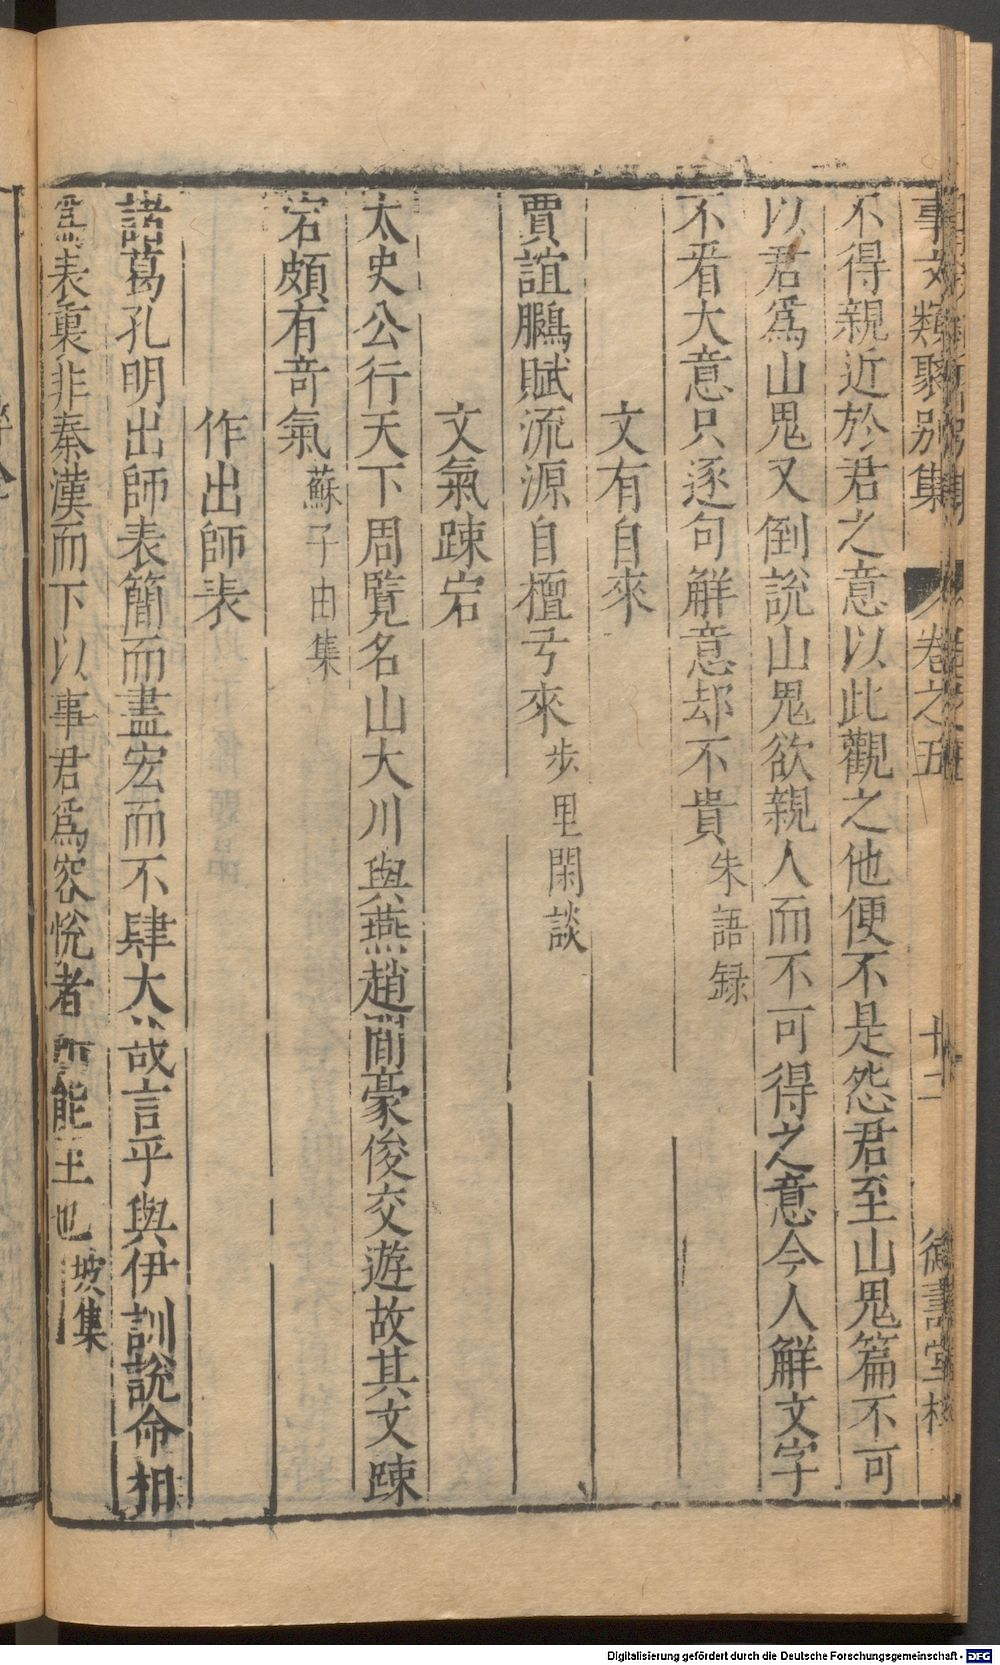 事文類聚別集 卷之五 十二
不得親近於君之意以此觀之他便不是怨君至山鬼篇不可
以君爲山鬼又倒說山鬼欲親人而不可得之意今人解文字
不看大意只逐句解意却不貴朱語録
文有自來
賈誼鵩賦流源自檀弓來步里閑談
文氣踈宕
太史公行天下周覽名山大川與燕趙間豪俊交遊故其文踈
宕頗有奇氣蘇子由集
作出師表
諸葛孔明出師表簡而盡宏而不肆大哉言乎與伊訓說命相
爲表裏非秦漢而下以事君爲容悅者所能至也坡集
Digitalisierung gefördert durch die Deutsche Forschungsgemeinschaft - DFG